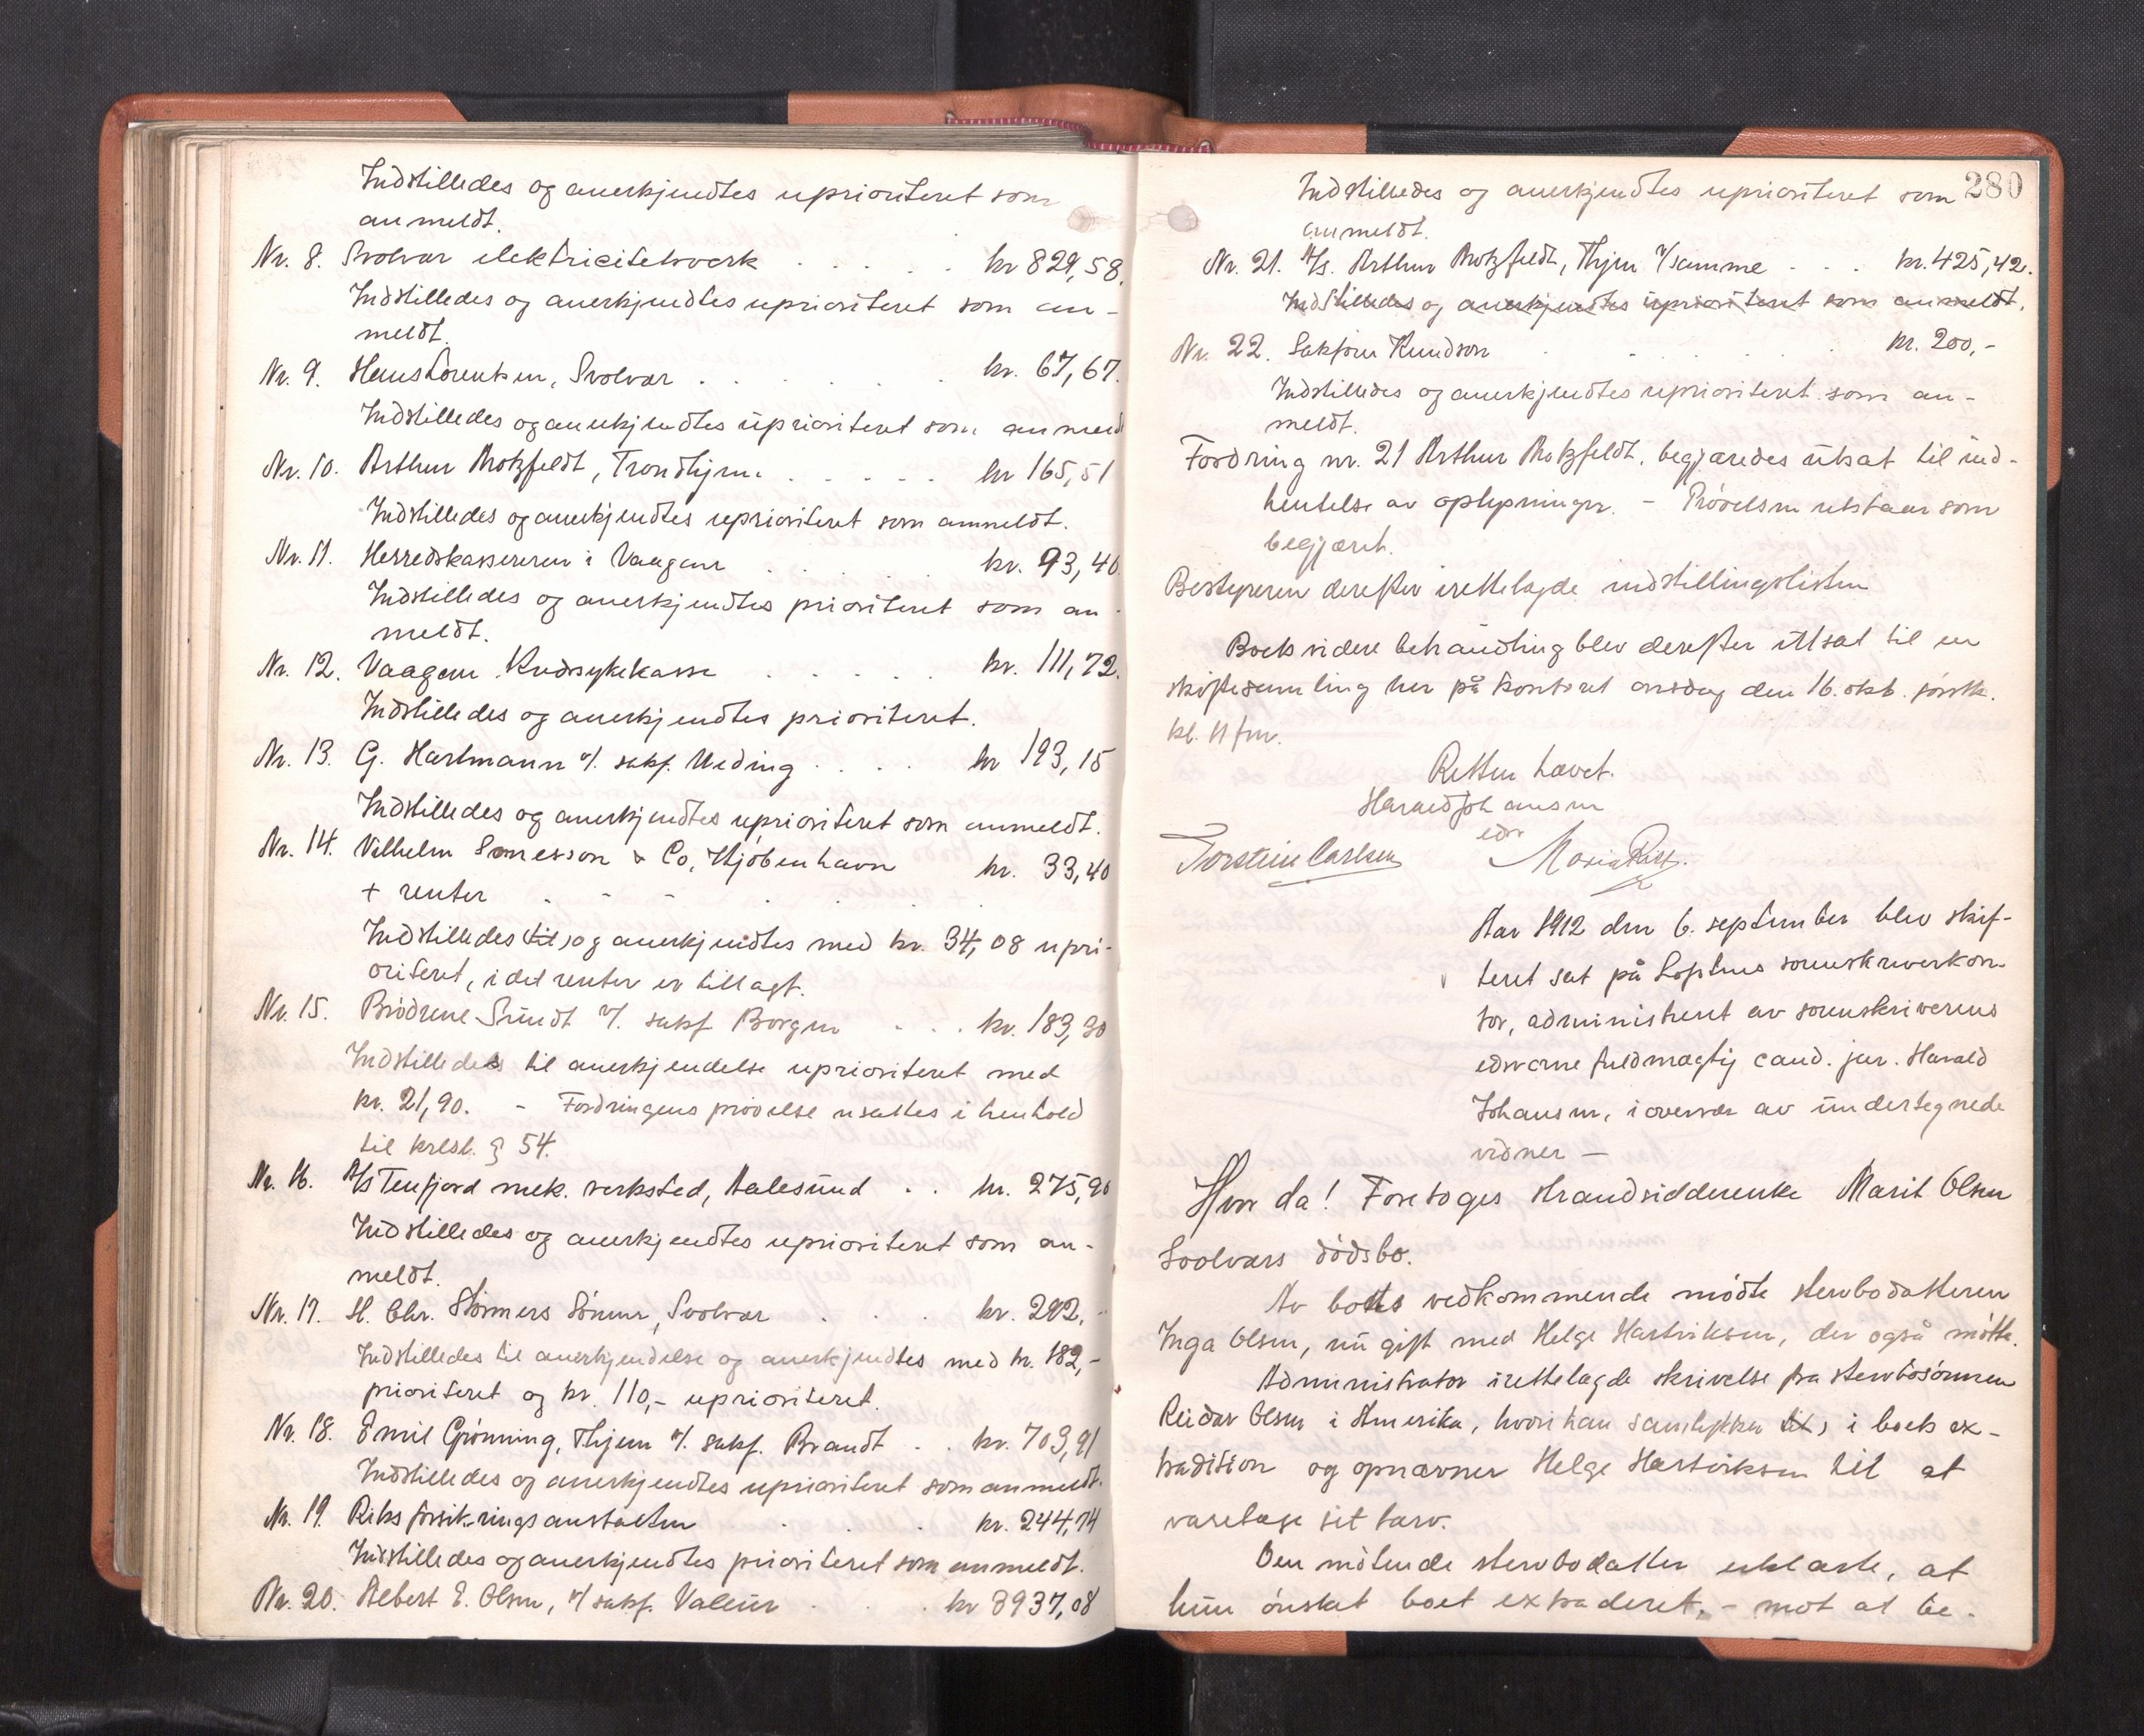 Indstilledes og anerkjendtes uprioriteret som
anmeldt.
Nr. 8. Svolvær elektricitetsverk . . . . . kr 829,58.
Indstilledes og anerkjendtes uprioriteret som an-
meldt.
Nr. 9. Hans Lorentsen, Svolvær . . . . . . kr. 67,67.
Indstilledes og anerkjendtes uprioriteret som anmeldt
Nr. 10. Arthur Motzfeldt, Trondhjem . . . . . kr 165,51
Indstilledes og anerkjendtes uprioriteret som anmeldt.
Nr. 11. Herredskassereren i Vaagan . . . . kr. 93,40
Indstilledes og anerkjendtes prioriteret som an-
meldt.
Nr. 12. Vaagan Kredssykekasse . . . . . kr. 111,72.
Indstilledes og anerkjendtes prioriteret.
Nr. 13. G. Hartmann v/. sakf. Meding . . . . kr 193,15
Indstilledes og anerkjendtes uprioriteret som anmeldt.
Nr. 14. Vilhelm & Co, Kjøbenhavn kr. 33,40
+ renter . - - . . .
Indstilledes (til) og anerkjendtes med kr. 34,08 upri-
oriteret, idet renter er tillagt.
Nr. 15. Brødrene Sundt v/. sakf Borgen . . . kr. 183,30
Indstilledes til anerkjendelse uprioriteret med
kr. 21,90. - Fordringens prøvelse utsattes i henhold
til krlsl. § 54.
Nr. 16. A/s Tenfjord mek. verksted, Aalesund . . kr. 275,90
Indstilledes og anerkjendtes uprioriteret som an-
meldt.
Nr. 17. H. Chr. Størmers Sønner, Svolvær . . . kr. 292,-
Indstilledes til anerkjendelse og anerkjendtes med kr. 182,-
prioriteret og kr. 110,- uprioriteret.
Nr. 18. Emil Grønning, Thjem v/. sakf. Brandt . . kr. 703,91
Indstilledes og anerkjendtes uprioriteret som anmeldt.
Nr. 19. Riksforsikringsanstalten . . . kr. 244,74
Indstilledes og anerkjendtes prioriteret som anmeldt.
Nr. 20. Albert E. Olsen, v/ sakf. Valeur . . . kr 8937,08
280
Indstilledes og anerkjendtes uprioriteret som
anmeldt.
Nr. 21. A/s. Arthur Motzfeldt, Thjem v/samme . . . kr. 425,42.
Indstilledes og anerkjendtes uprioriteret som anmeldt.
Nr. 22. Sakfører Knudson . . . . . kr. 200,-
Indstilledes og anerkjendtes uprioriteret som an-
meldt.
Fordring nr. 21 Arthur Motzfeldt, begjæredes utsat til ind-
hentelse av oplysninger. - Prøvelsen utstaar som
begjært.
Bestyreren derefter irettelagde indstillingslisten
Boets videre behandling blev derefter utsat til en
skiftesamling her på kontoret onsdag den 16. okt. førstk.
kl. 11 fm.
Retten hævet.
Harald Johansen
edv
Torstein Carlsen Maria
Aar 1912 den 6. september blev skif-
teret sat på Lofotens sorenskriverkon-
tor, administreret av sorenskriverens
edsvorne fuldmægtig cand. jur. Harald
Johansen, i overvær av undertegnede
vidner —
Hvor da! Foretoges strandsidderenke Marit Olsen
Svolværs dødsbo.
Av boets vedkommende mødte stervbodatteren
Inga Olsen, nu gift med Helge Hartviksen, der også møtte.
Administrator irettelagde skrivelse fra stervbosønnen
Reidar Olsen i Amerika, hvori han samtykker (til) i boets ex-
tradition og opnævner Helge Hartviksen til at
varetage sit tarv.
Den møtende stervbodatter erklærte, at
hun ønsket boet extraderet, - mot at be-